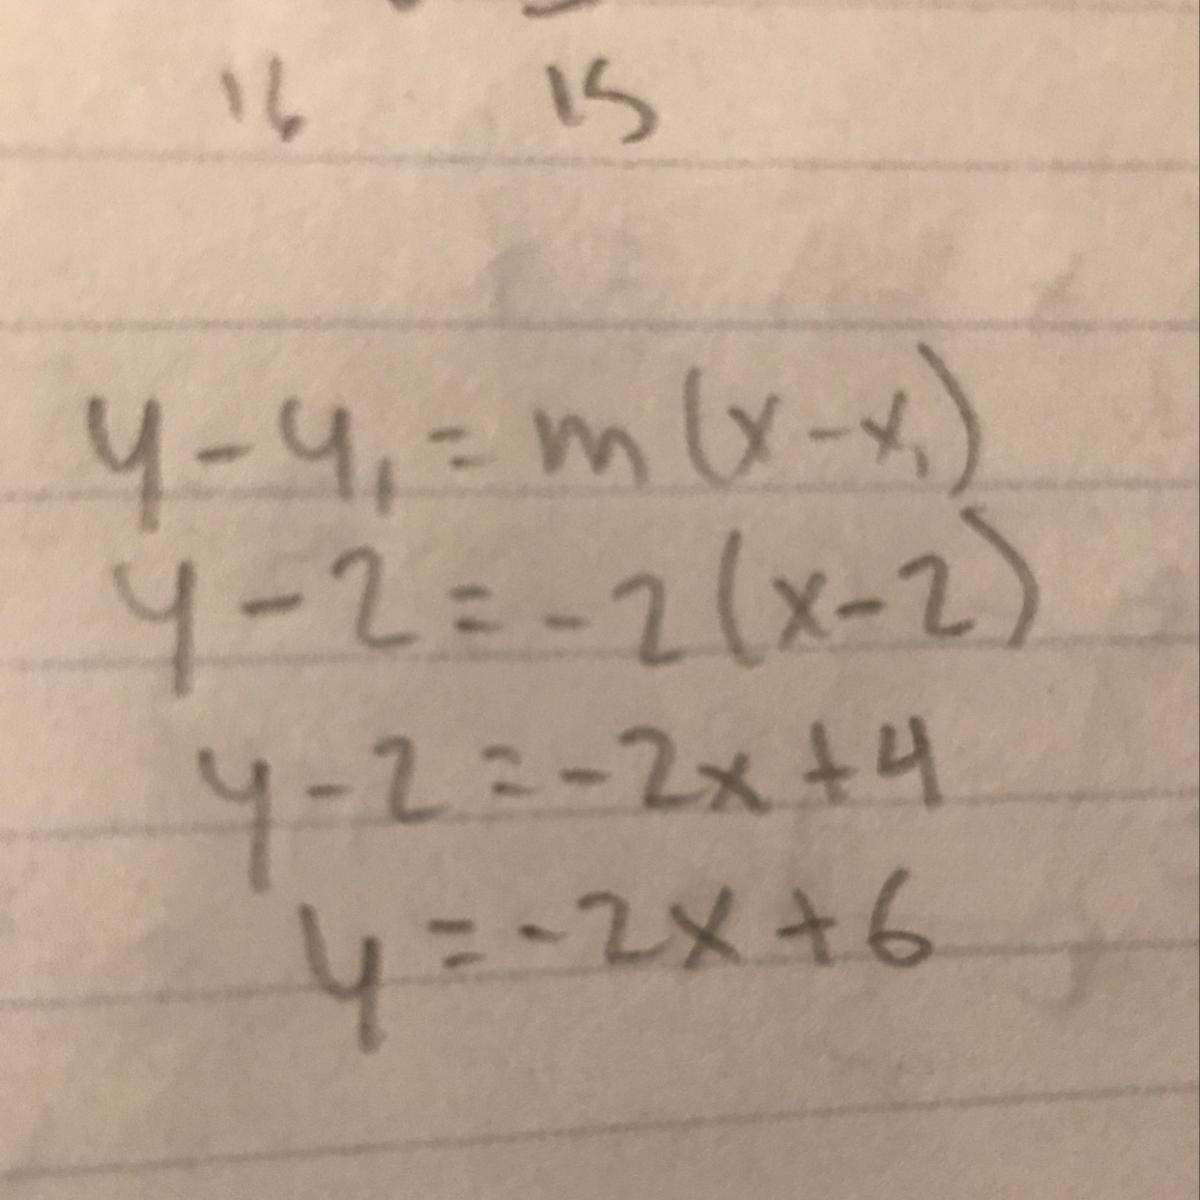 16 15
y - y₁ = m(x - x₁)
y - 2 = -2(x - 2)
y - 2 = -2x + 4
y = -2x + 6